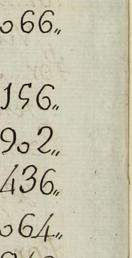 066„
156„
902„
436„
064„